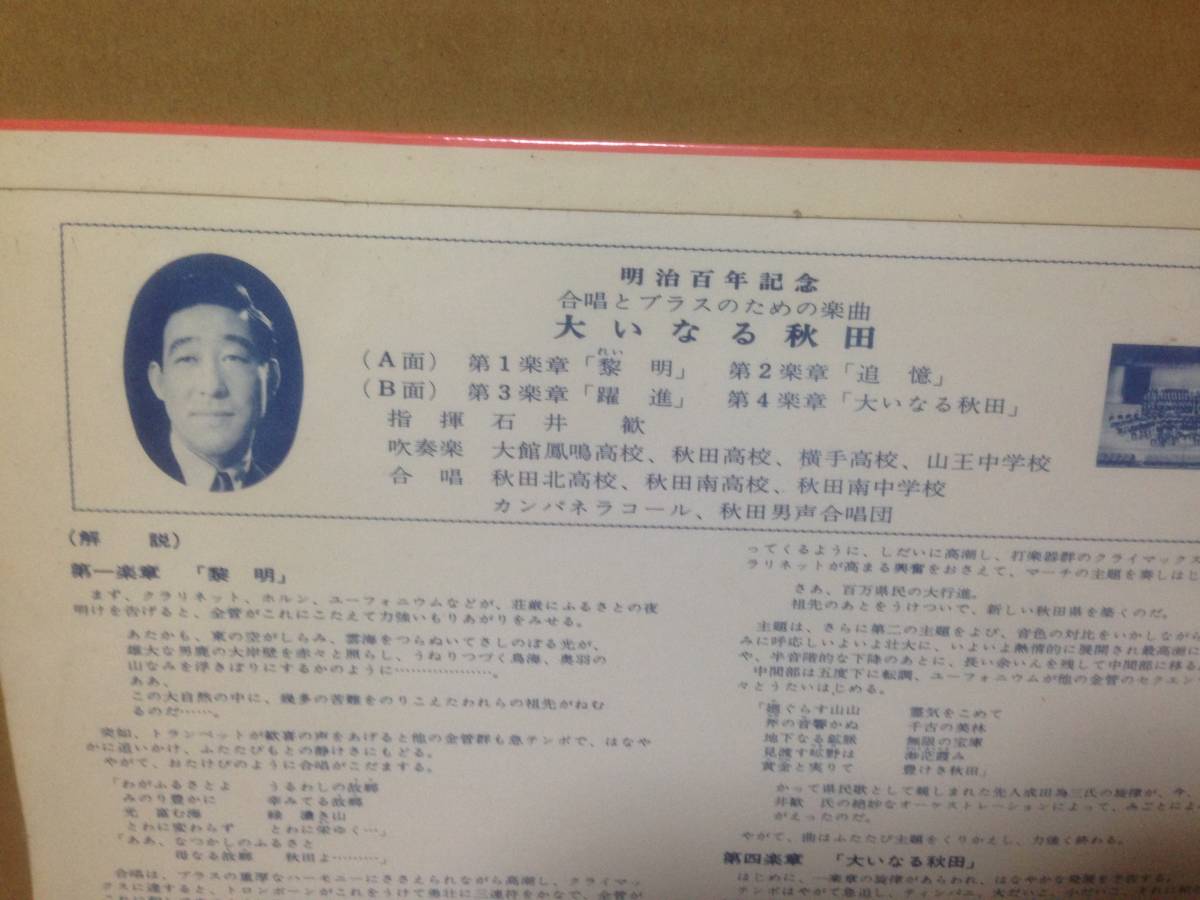 明治百年記念
合唱とブラスのための楽曲
大いなる秋田
(A面) 第1楽章「黎明」 第2楽章「追憶」
れい
(B面) 第3楽章「躍進」 第4楽章「大いなる秋田」
指揮 石井 歓
吹奏楽 大館鳳鳴高校、秋田高校、横手高校、山王中学校
合唱 秋田北高校、秋田南高校、秋田南中学校
カンパネラコール、秋田男声合唱団
(解 説)
第一楽章 「黎明」
まず、クラリネット、ホルン、ユーフォニウムなどが、荘厳にふるさとの夜
明けを告げると、全管がこれにこたえて力強いもりあがりをみせる。
あたかも、東の空がしらみ、雲海をつらぬいてさしのぼる光が、
雄大な男鹿の大岸壁を赤々と照らし、うねりつづく鳥海、奥羽の
山なみを浮きぼりにするかのように………………。
ああ、
この大自然の中に、幾多の苦難をのりこえたわれらの祖先がねむ
るのだ……。
突如、トランペットが歓喜の声をあげると他の金管群も急テンポで、はなや
かに追いかけ、ふたたびもとの静けさにもどる。
やがて、おたけびのように合唱がこだまする。
「わがふるさとよ うるわしの故郷
みのり豊かに 幸みてる故郷
光 富む海 緑 濃き山
とわに変わらず とわに栄ゆく…」
「ああ、なつかしのふるさと
母なる故郷 秋田よ………」
合唱は、ブラスの重厚なハーモニーにささえられながら高潮し、クライマッ
クスに達すると、トロンボーンがこれをうけて勇壮に三連符をかなで、全管が
ってくるように、しだいに高潮し、打楽器群のクライマックス
ラリネットが高まる興奮をおさえて、マーチの主題を奏しはじ
さあ、百万県民の大行進。
祖先のあとをうけついで、新しい秋田県を築くのだ。
主題は、さらに第二の主題をよび、音色の対比をいかしながら
みに呼応しいよいよ壮大に、いよいよ熱情的に展開され最高潮に
や、半音階的な下降のあとに、長い余いんを残して中間部に移る
中間部は五度下に転調、ユーフォニウムが他の金管のセクエン
々とうたいはじめる。
「廻ぐらす山山 霊気をこめて
斧の音響かぬ 千古の美林
地下なる鉱脈 無限の宝庫
見渡す曠野は 渺茫霞み
黄金と実りて 豊けき秋田」
かって県民歌として親しまれた先人成田為三氏の旋律が、今、
井歓 氏の絶妙なオーケストレーションによって、みごとによ
がえったのだ。
やがて、曲はふたたび主題をくりかえし、力強く終わる。
第四楽章 「大いなる秋田」
はじめに、一楽章の旋律があらわれ、はなやかな発展を予告する。
テンポはやがて急迫し、ティンパニ、大だいこ、小だいこ、それに